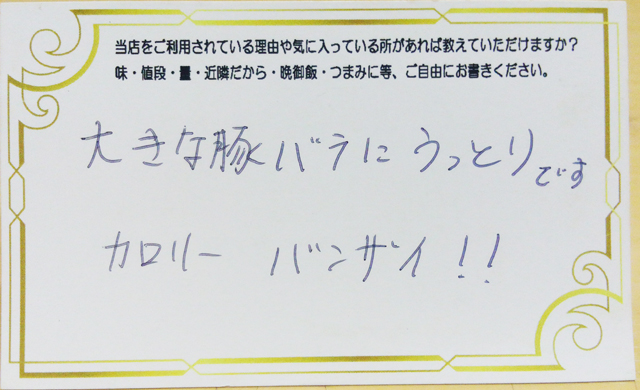 当店をご利用されている理由や気に入っている所があれば教えていただけますか?
味・値段・量・近隣だから・晩御飯・つまみに等、ご自由にお書きください。
大きな豚バラにうっとりです
カロリー バンザイ!!